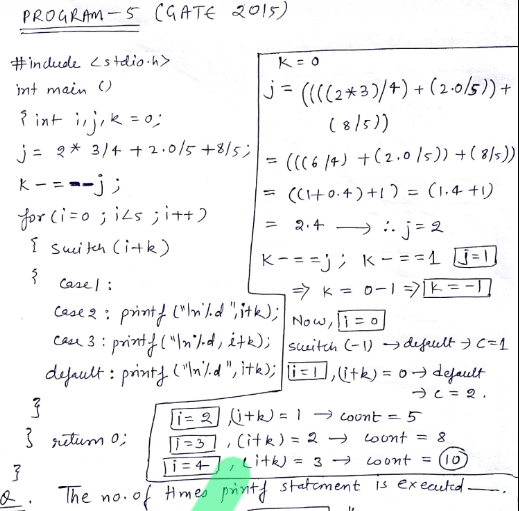 PROGRAM-5 (GATE 2015)
#include <stdio.h>
int main ()
{ int i,j,k = 0;
j = 2* 3/4 + 2.0/5 + 8/5;
k -= --j;
for (i=0 ; i<5 ; i++)
{ switch (i+k)
{ case 1 :
case 2 : printf ("\n%d", i+k);
case 3 : printf ("\n%d, i+k);
default : printf ("\n%d", i+k);
}
} return 0;
}
k = 0
j = ((((2*3)/4) + (2.0/5)) +
(8/5))
= (((6/4) + (2.0/5)) + (8/5))
= ((1+0.4)+1) = (1.4+1)
= 2.4 → ∴ j = 2
k -= =j ; k -= =1 j=1
⇒ k = 0-1 ⇒ k = -1
Now, i = 0
switch (-1) → default → c=1
i=1, (i+k) = 0 → default
→ c = 2.
i = 2, (i+k) = 1 → count = 5
i=3, (i+k) = 2 → count = 8
i = 4, (i+k) = 3 → count = 10
Q. The no. of times printf statement is executed ___.